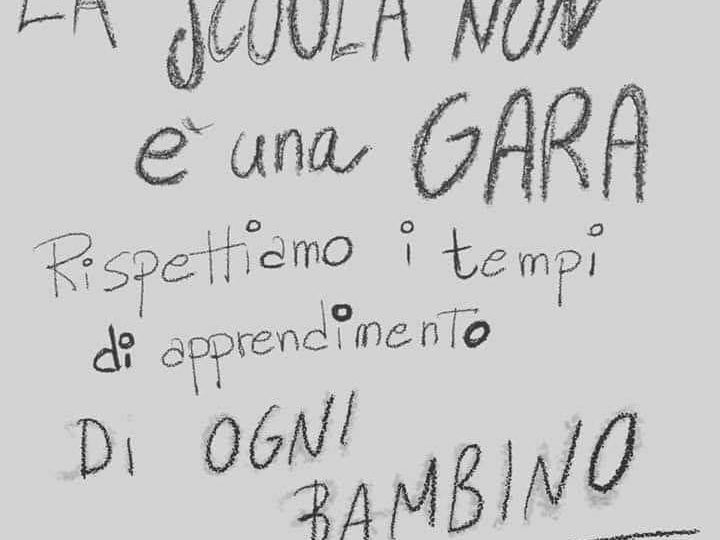 LA SCUOLA NON
è una GARA
Rispettiamo i tempi
di apprendimento
Di OGNI
BAMBINO